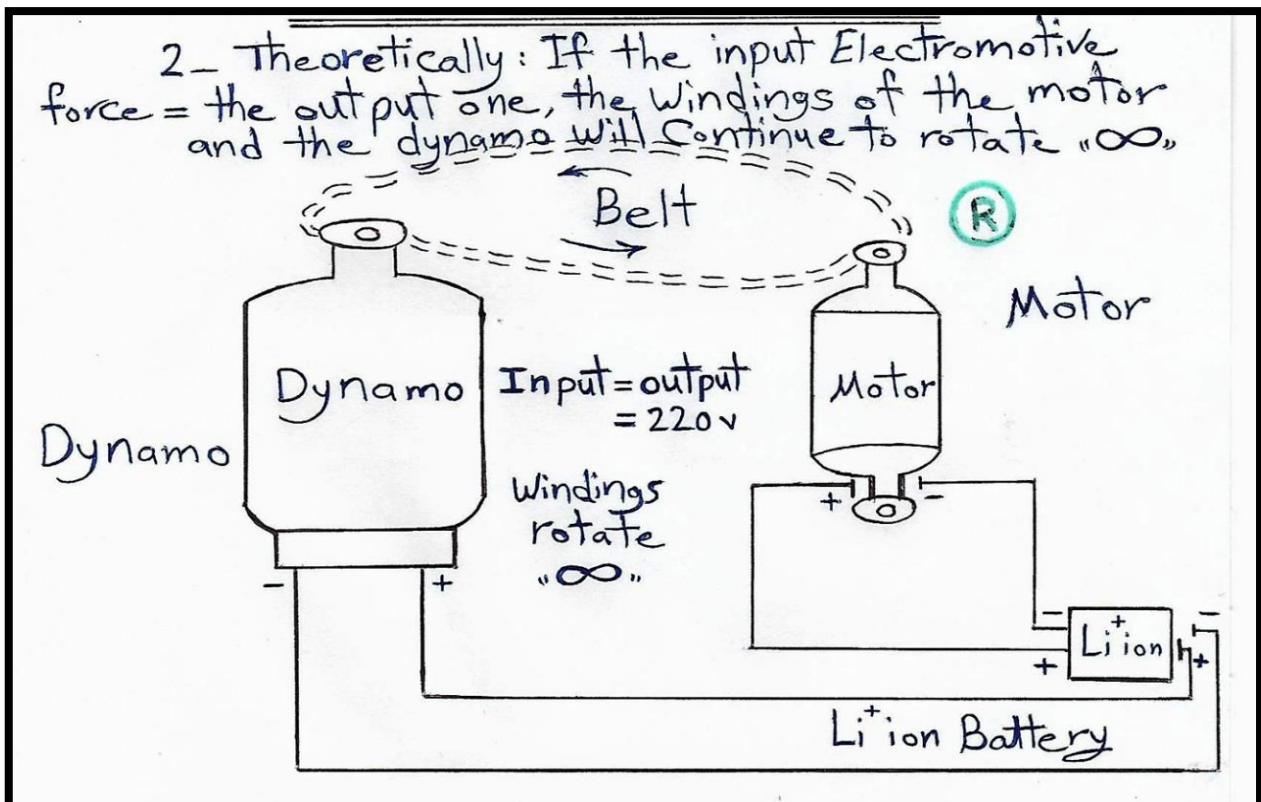 2_ Theoretically: If the input Electromotive
force = the output one, the windings of the motor
and the dynamo will Continue to rotate "∞"
Belt
R
Motor
Dynamo
Input = output
= 220v
Motor
Dynamo
Windings
rotate
"∞"
+
-
-
+
-
+
Li⁺ion
-
+
Li⁺ion Battery